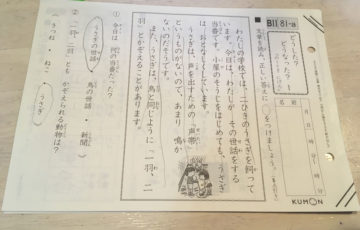 BⅡ 81-a
どうなった?
どうなった?
文章を読み、正しい答えに○をつけましょう。
名前
月
日
時
分
わたしの学校では、二ひきのうさぎを飼って
います。今日は、わたしが その世話をする
当番です。小屋のそうじをはじめても、うさぎ
は おとなしくしています。
うさぎは、声を出すための「声帯」
というものがないので、あまり 鳴か
ないのだそうです。
また、うさぎは、鳥と同じように「一羽、二
羽」とかぞえることがあります。
① 今日は 何の当番だった?
うさぎの世話 ・ 鳥の世話 ・ 新聞
② 「一羽、二羽」ともかぞえられる動物は?
きつね ・ ねこ ・ うさぎ
KUMON